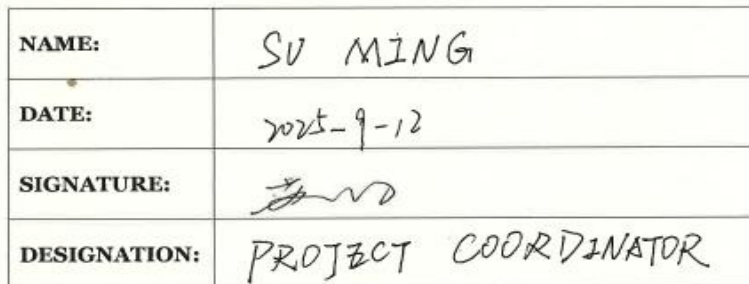 NAME: SU MING
DATE: 2025-9-12
SIGNATURE:
DESIGNATION: PROJECT COORDINATOR